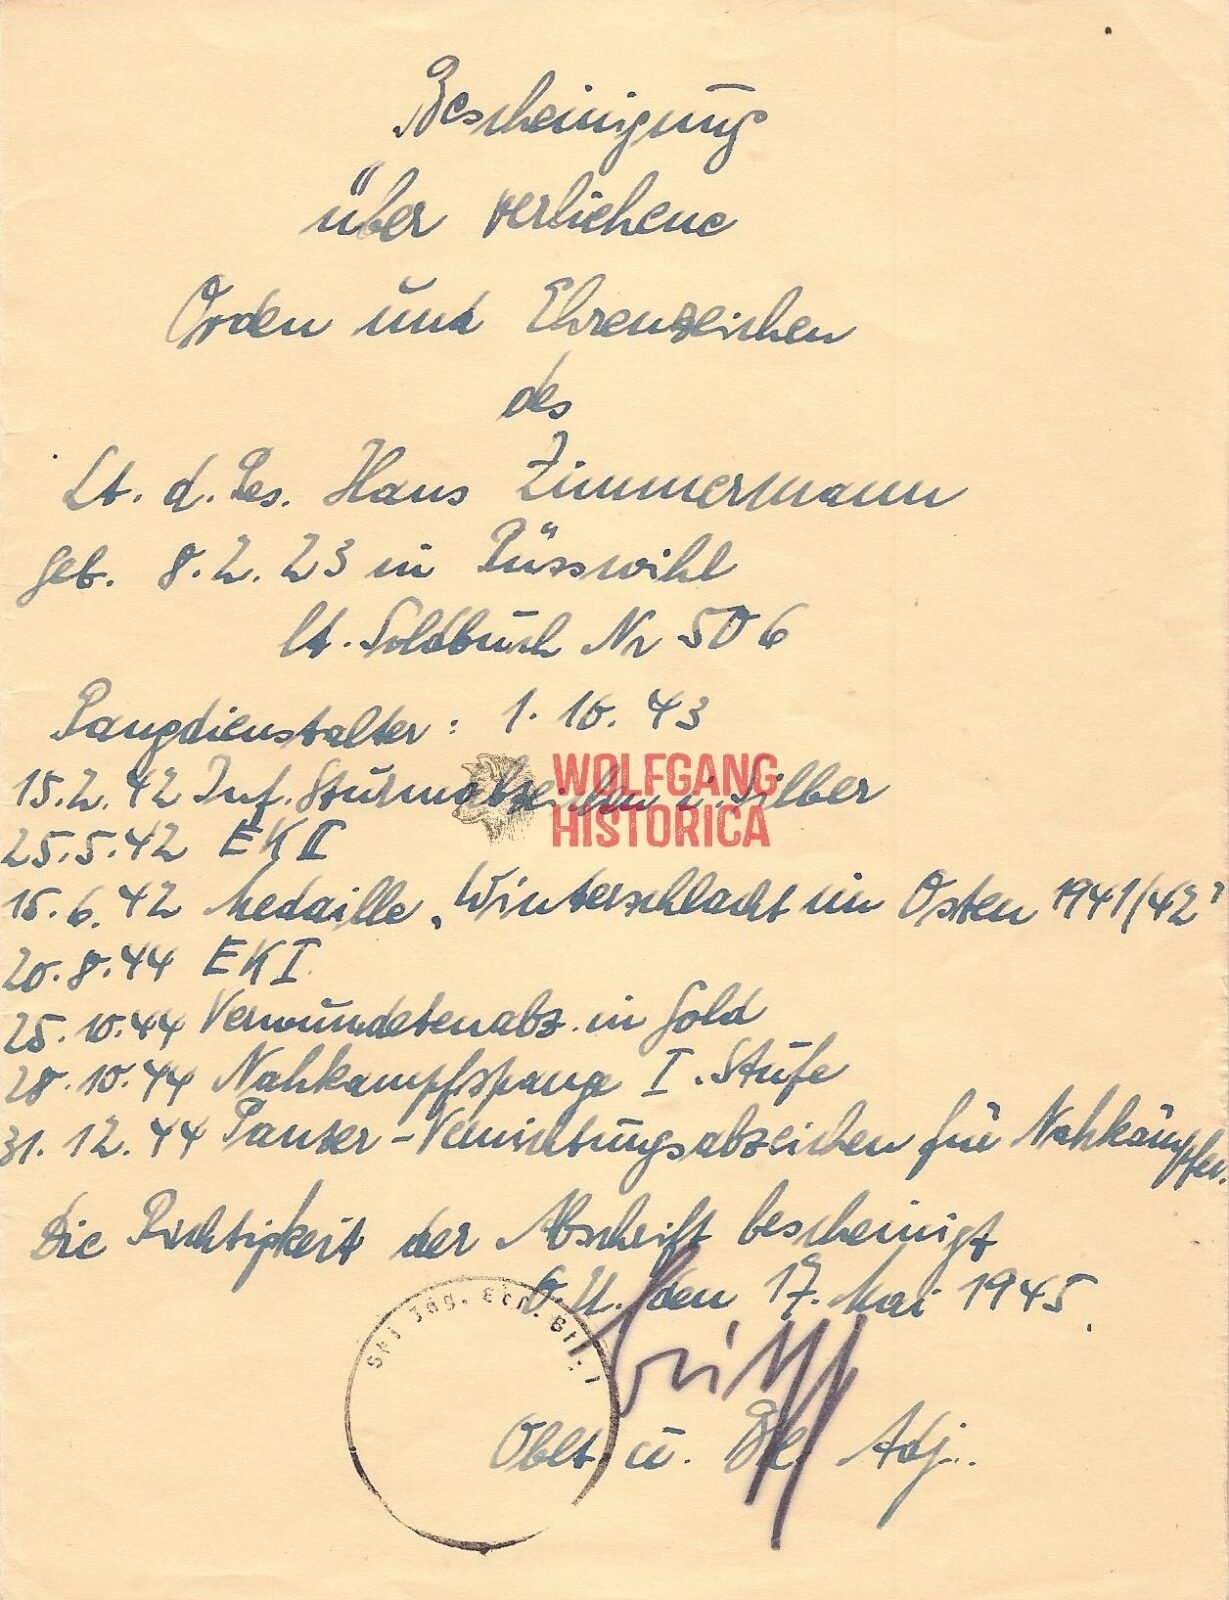 Bescheinigung
über verliehene
Orden und Ehrenzeichen
des
Lt. d. Res. Hans Zimmermann
geb. 8.2.23 in Rüsswihl
lt. Soldbuch Nr 506
Rangdienstalter: 1.10.43
15.2.42 Inf. Sturmabzeichen i. Silber
WOLFGANG
HISTORICA
25.5.42 EK II
15.6.42 Medaille „Winterschlacht im Osten 1941/42"
20.8.44 EK I
25.10.44 Verwundetenabz. in Gold
28.10.44 Nahkampfspange I. Stufe
31.12.44 Panzer-Vernichtungsabzeichen für Nahkämpfer.
Die Richtigkeit der Abschrift bescheinigt
O.U. den 17. Mai 1945.
Ski Jäg. Ers. Btl. 1
Oblt. u. Btl. Adj.